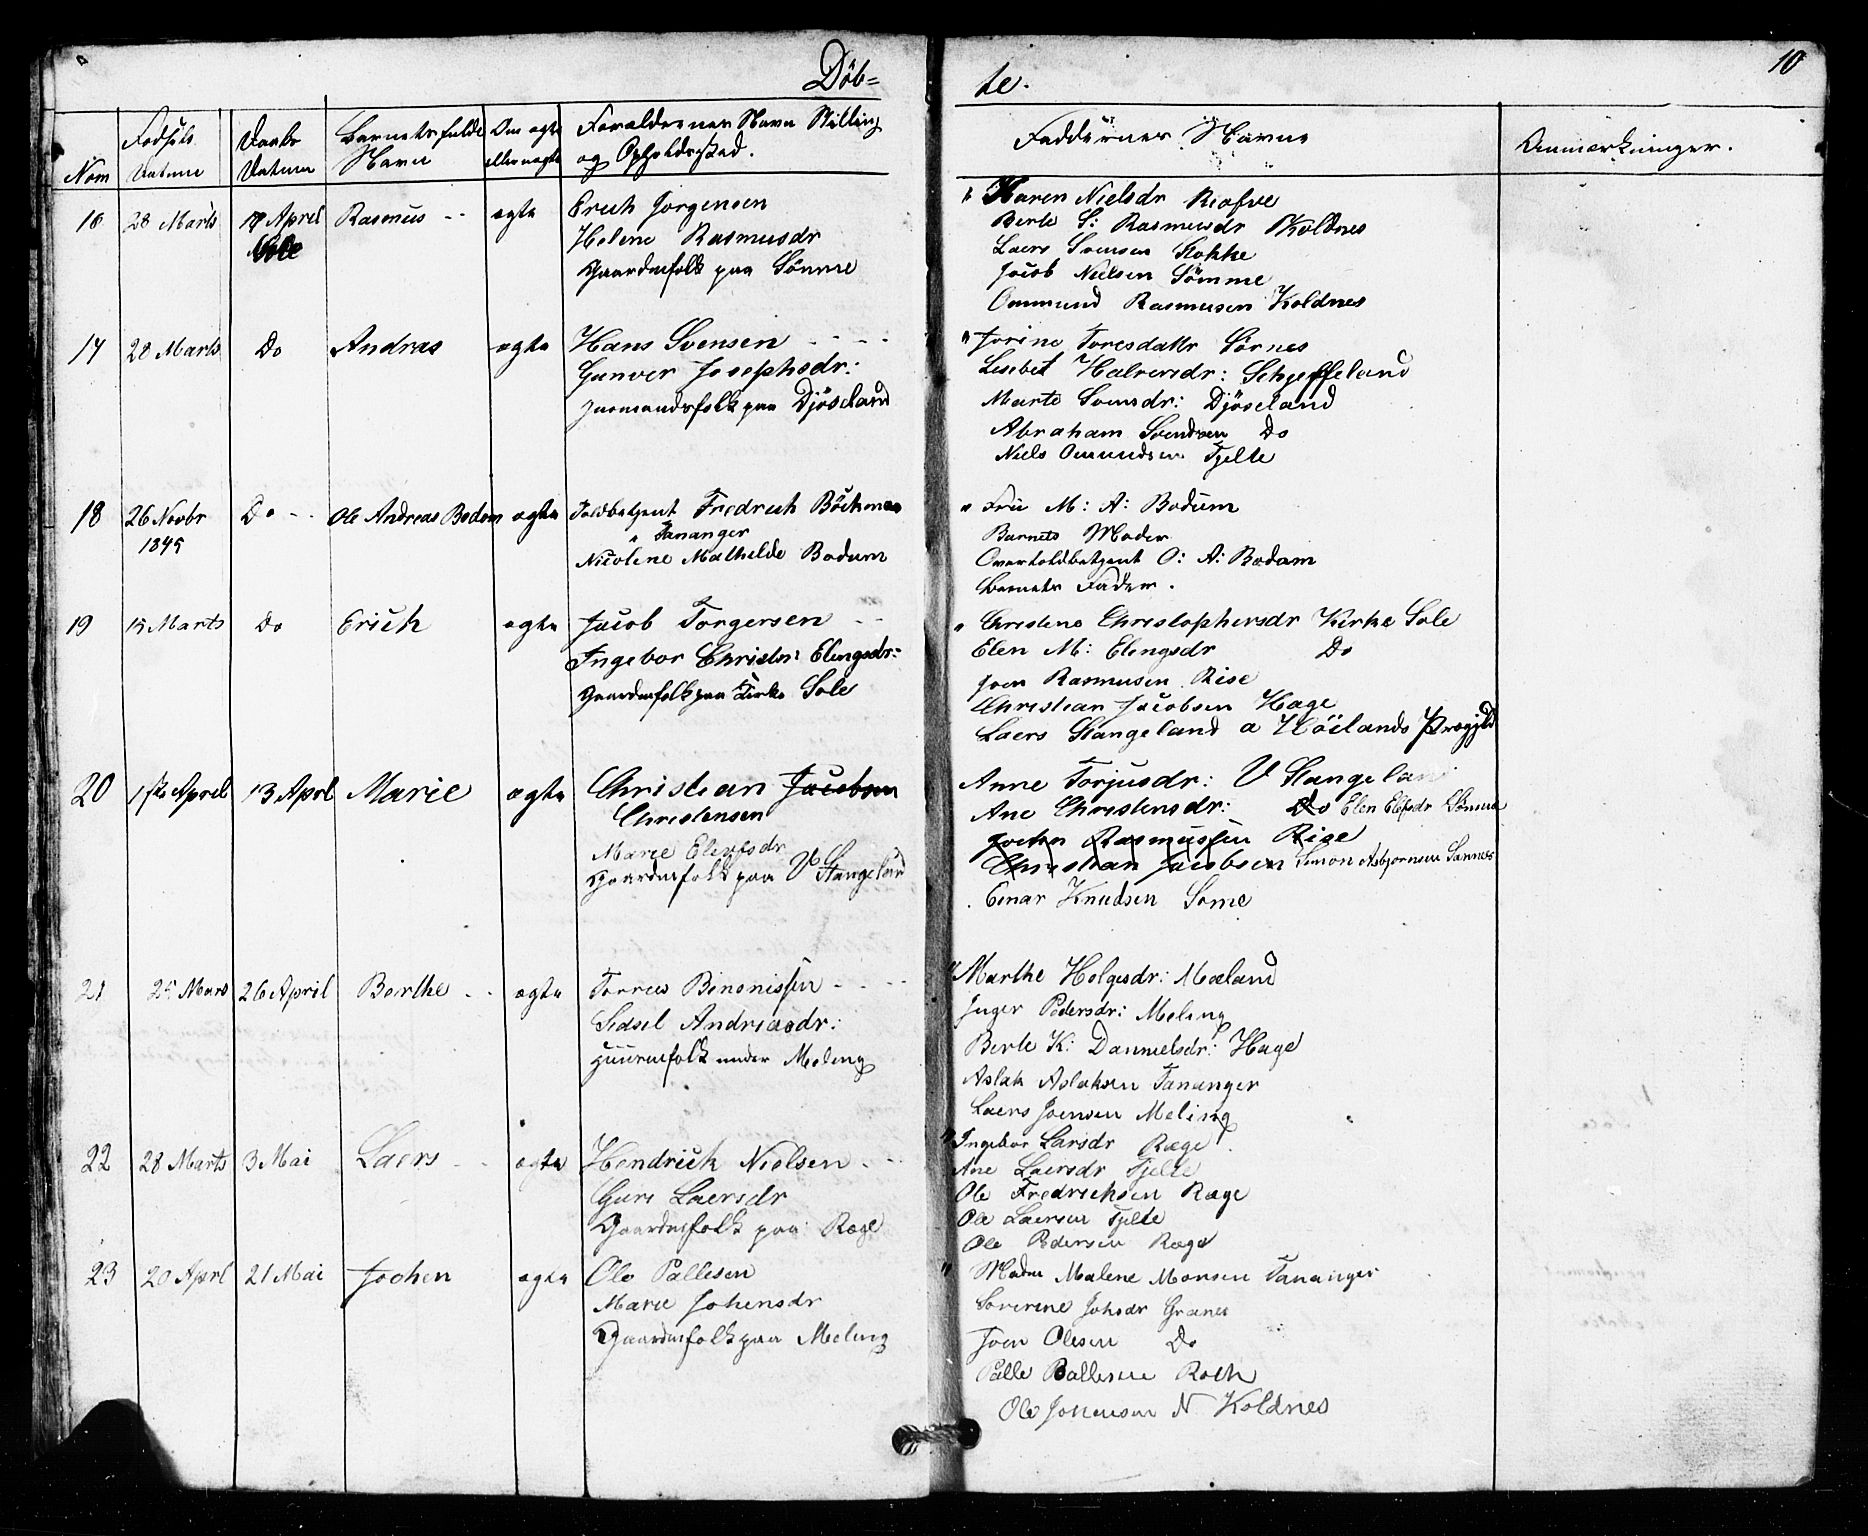 Döb=
te.
10
Nom
Fødsels Datum
Daabs Datum
Barnets fulde Navn
Om ægte eller uægte
Forældrenes Navn Stilling
og Opholdssted.
Faddernes Navne
Anmærkninger.
16 28 Marts 19 April Rasmus -- ægte Erich Jorgensen
Sole
Helene Rasmusdr
Gaardmfolk paa Sömme
" Karen Nielsdr Reofve
Berte S: Rasmusdr Koldnes
Laers Svensen Stokke
Jacob Nielsen Sömme
Ommund Rasmusen Koldnes
17 28 Marts Do Andras ægte Hans Svensen
Gunver Josephsdr:
paa Djöseland
" Jorine Toresdattr Sörnes
Lisebet Halversdr: Schjeffeland
Marte Svensdr: Djöseland
Abraham Svendsen Do
Niels Omundsen Tjelte
18 26 Novbr 1845 Do -- Ole Andreas Bodom ægte Toldbetjent Fredrich Böckman
" Tananger
Nicolene Mathilde Bodum
" Fru M: A: Bodum
Barnets Moder
Overtoldbetjent O: A: Bodam
Barnets Fader.
19 15 Marts Do Erich ægte Jacob Torgersen --
Ingebor Christn: Elingsdr:
Gaardmfolk paa Kirke Sole
" Christene Christophersdr Kirke Sole
Elen M: Elingsdr Do
Joen Rasmusen Rise
Christian Jacobsen Hage
Laers Stangeland a Höilands Prægjeld
20 1ste April 13 Aprl Marie ægte Christian Jacobsen
Christensen
Marie Elevfsdr
Gaardmfolk paa V Stangeland
Anne Torjusdr: V Stangeland
Ane Christensdr: Do Elen Elefsdr Sömme
Joehn Rasmussen Rise
Christian Jacobsen Simon Asbjornsen Sannes
Einar Knudsen Some
21 25 Mars 26 April Berthe -- ægte Torres Binonissen
Sidsel Andreasdr:
Huusmfolk under Meling
" Marthe Helgesdr: Mæland
Inger Pedersdr: Meling
Berte K: Dannielsdr: Hage
Aslak Aslaksen Tananger
Laers Joensen Meling
22 28 Marts 3 Mai Laers -- ægte Hendrick Nielsen
Guri Laersdr
Gaardmfolk paa Ræge
" Ingebor Larsdr Ræge
Ane Laersdr Tjelte
Ole Fredrichsen Ræge
Ole Laersen Tjelte
Ole Pedersen Ræge
23 20 Aprl 21 Mai Jochen ægte Ole Pallesen
Marie Johensdr
Gaardmfolk paa Meling
" Madm Malene Monsen Tananger
Soverine Johsdr Granes
Joen Olesen Do
Palle Ballesen Roth
Ole Johensen N Koldnes